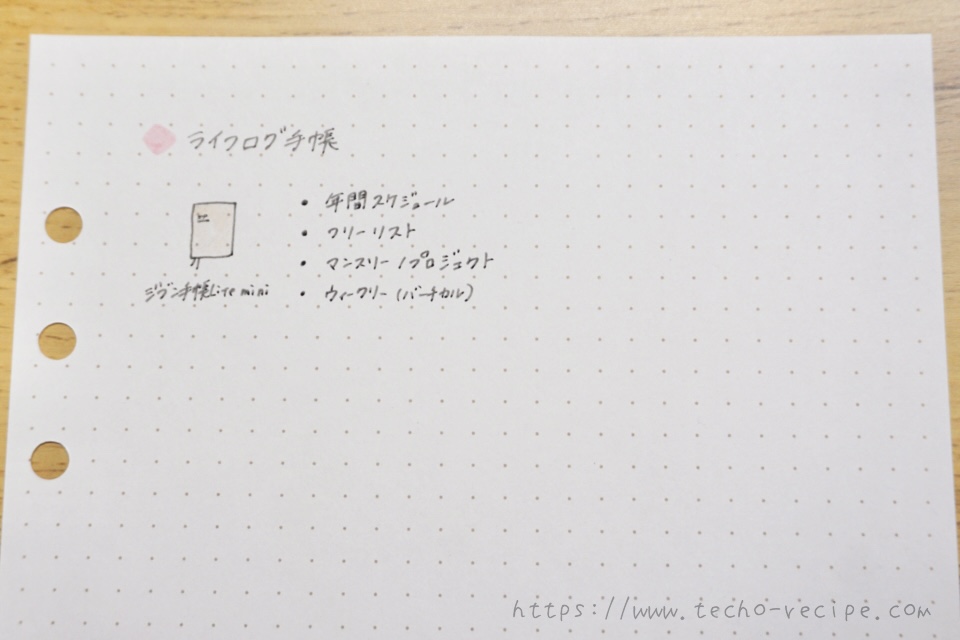 ライフログ手帳
・ 年間スケジュール
・ フリーリスト
・ マンスリー/プロジェクト
・ ウィークリー(バーチカル)
ジブン手帳Lite mini
https://www.techo-recipe.com